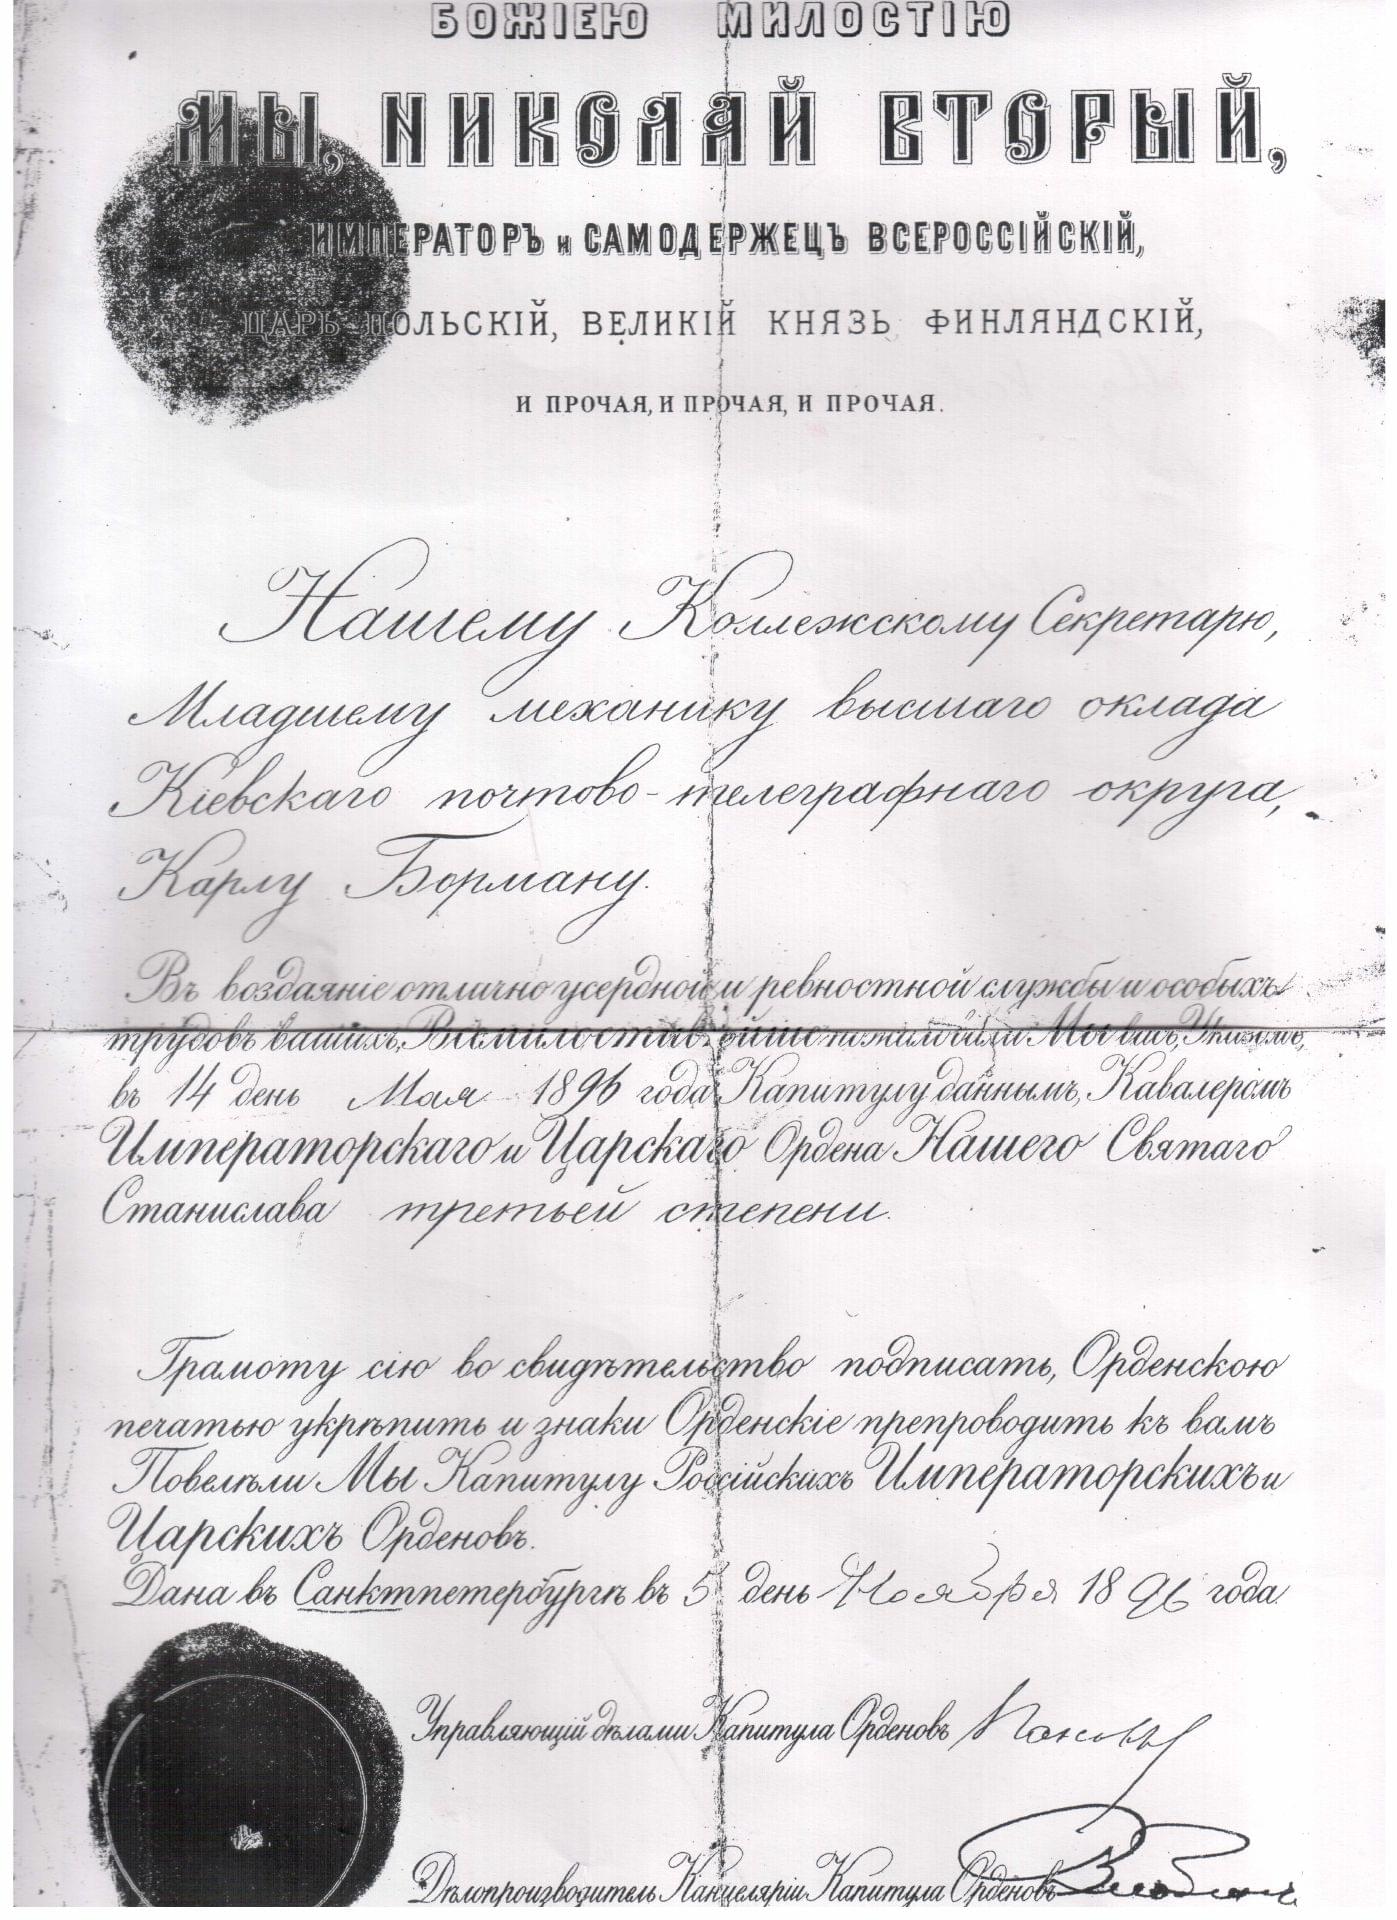 БОЖІЕЮ МИЛОСТІЮ
МЫ, НИКОЛАЙ ВТОРЫЙ,
ИМПЕРАТОРЪ и САМОДЕРЖЕЦЪ ВСЕРОССІЙСКІЙ,
ЦАРЬ ПОЛЬСКІЙ, ВЕЛИКІЙ КНЯЗЬ ФИНЛЯНДСКІЙ,
И ПРОЧАЯ, И ПРОЧАЯ, И ПРОЧАЯ.
Нашему Коллежскому Секретарю,
Младшему механику высшаго оклада
Кіевскаго почтово-телеграфнаго округа,
Карлу Борману.
Въ воздаяніе отлично усердной и ревностной службы и особыхъ
трудовъ вашихъ, Всемилостивѣйше пожаловали Мы васъ, Указомъ,
въ 14 день Мая 1896 года Капитулу даннымъ, Кавалеромъ
Императорскаго и Царскаго Ордена Нашего Святаго
Станислава третьей степени.
Грамоту сію во свидѣтельство подписать, Орденскою
печатью укрѣпить и знаки Орденскіе препроводить къ вамъ
Повелѣли Мы Капитулу Россійскихъ Императорскихъ и
Царскихъ Орденовъ.
Дана въ Санктпетербургѣ въ 5 день Ноября 1896 года.
Управляющій дѣлами Капитула Орденовъ
Дѣлопроизводитель Канцеляріи Капитула Орденовъ